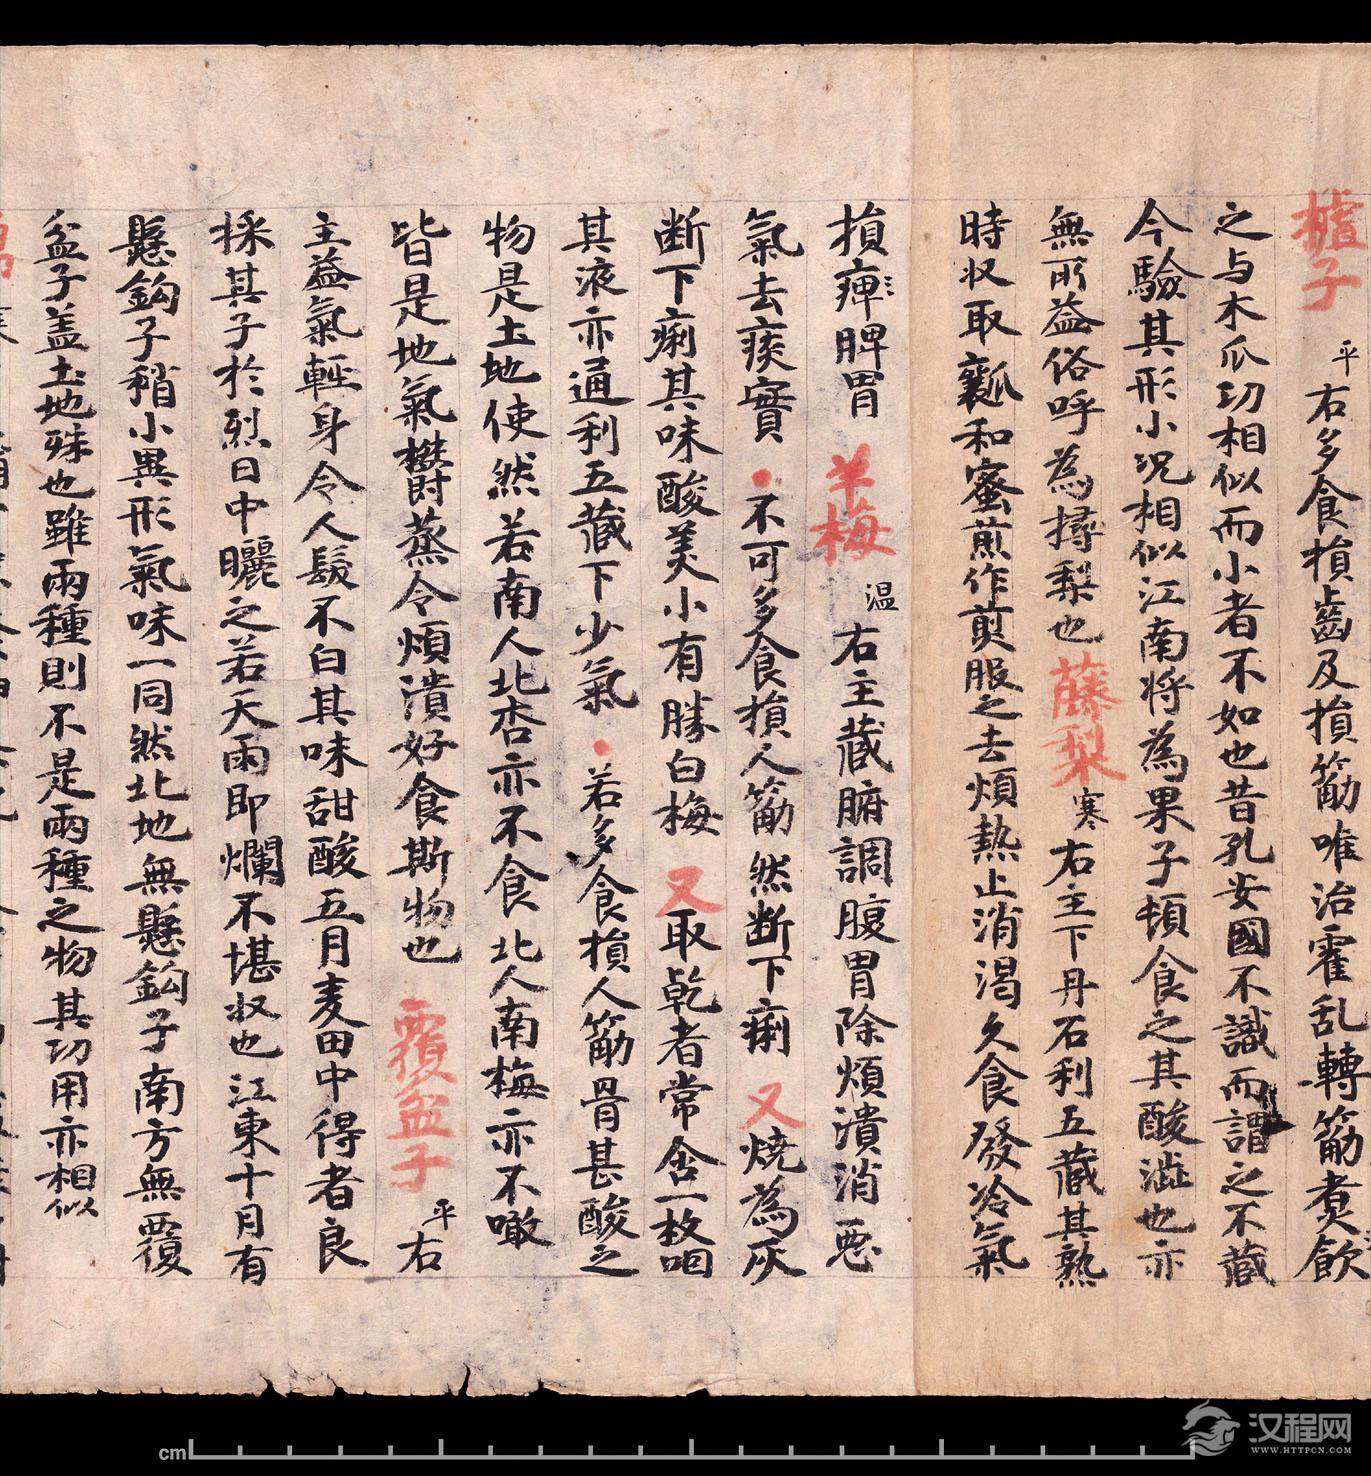 樝子 平 右多食損齒及損筯唯治霍乱轉筯煑飲
之与木爪㓛相似而小者不如也昔孔安國不識而謂之不藏
今驗其形小况相似江南将為果子頓食之其酸澁也亦
無所益俗呼為㯆梨也 藤梨 寒 右主下丹石利五藏其熟
時収取瓤和蜜煎作煎服之去煩熱止消渴久食發冷氣
損痺脾胃 羊梅 温 右主藏腑調腹胃除煩潰消惡
氣去痰實・不可多食損人筯然断下痢 又燒為灰
断下痢其味酸美小有勝白梅 又取乾者常含一枚咽
其液亦通利五藏下少氣・若多食損人筯骨甚酸之
物是土地使然若南人北杏亦不食北人南梅亦不噉
皆是地氣欝蒸令煩潰好食斯物也 覆盆子 平 右
主益氣輕身令人髮不白其味甜酸五月麦田中得者良
採其子於烈日中曬之若天雨即爛不堪収也江東十月有
懸鈎子稍小異形氣味一同然北地無懸鈎子南方無覆
盆子盖土地殊也雖兩種則不是兩種之物其㓛用亦相似
cm
汉程网
WWW.HTTPCN.COM